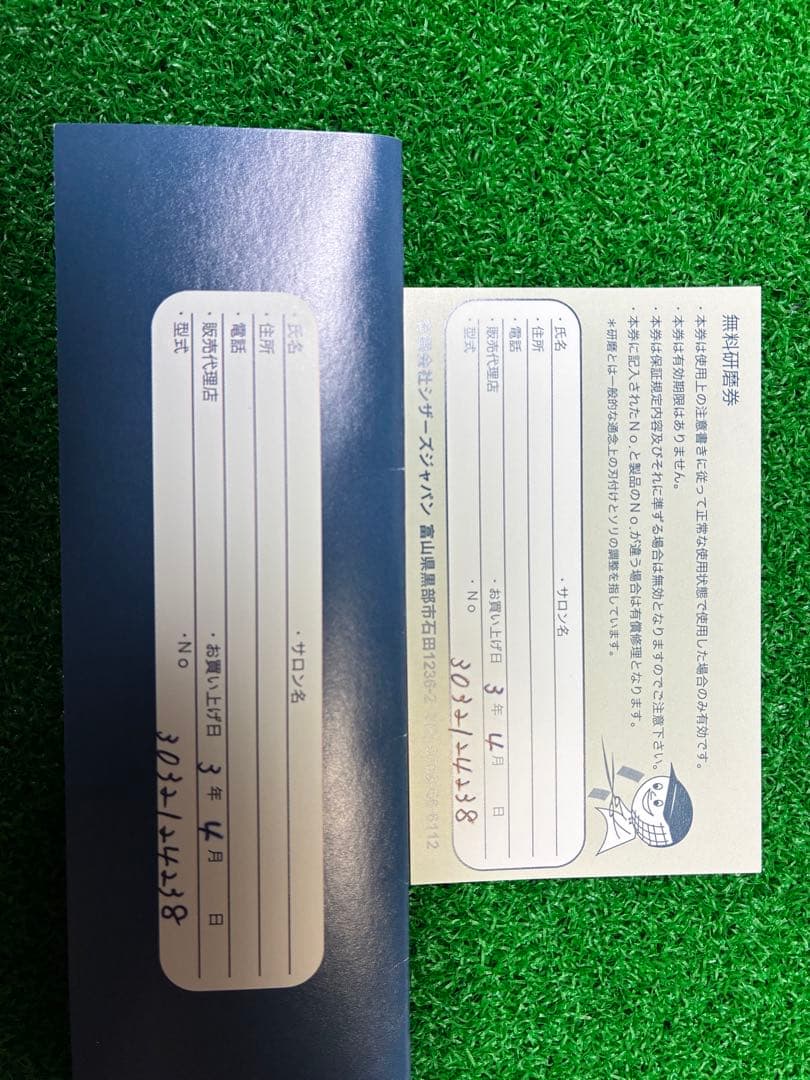 無料研磨券
・本券は使用上の注意書きに従って正常な使用状態で使用した場合のみ有効です。
・本券は有効期限はありません。
・本券は保証規定内容及びそれに準ずる場合は無効となりますのでご注意下さい。
・本券に記入されたNo.と製品のNo.が違う場合は有償修理となります。
＊研磨とは一般的な通念上の刃付けとソリの調整を指しています。
・氏名 ・サロン名
・住所
・電話
・販売代理店 ・お買い上げ日 3年 4月 日
・型式 ・No 3032124238
会社シザーズジャパン 富山県黒部市石田1236-2
・氏名 ・サロン名
・住所
・電話
・販売代理店 ・お買い上げ日 3年 4月 日
・型式 ・No 3032124238